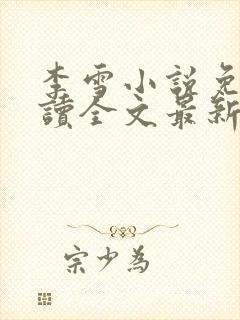 李雪小說免
讀全文最新
宗少為